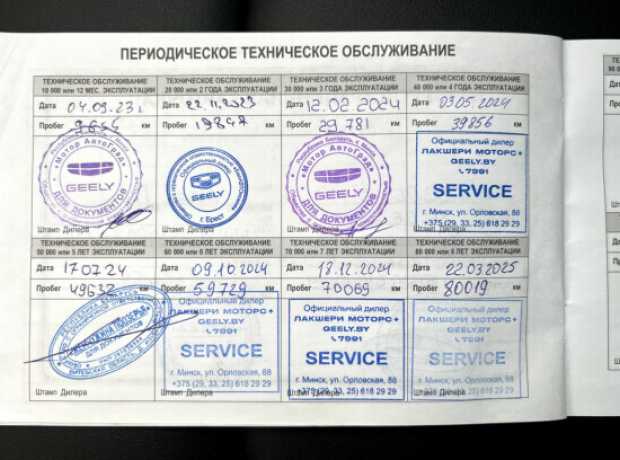 ПЕРИОДИЧЕСКОЕ ТЕХНИЧЕСКОЕ ОБСЛУЖИВАНИЕ
ТЕХНИЧЕСКОЕ ОБСЛУЖИВАНИЕ
10 000 или 12 МЕС. ЭКСПЛУАТАЦИИ
Дата 04.09.23г
Пробег км
«Мотор АвтоГрад»
GEELY
ДЛЯ ДОКУМЕНТОВ
Штамп Дилера
ТЕХНИЧЕСКОЕ ОБСЛУЖИВАНИЕ
20 000 или 2 ГОДА ЭКСПЛУАТАЦИИ
Дата 22.11.2023
Пробег 19847 км
GEELY
г. Брест
Штамп Дилера
ТЕХНИЧЕСКОЕ ОБСЛУЖИВАНИЕ
30 000 или 3 ГОДА ЭКСПЛУАТАЦИИ
Дата 12.02 2024
Пробег 29 781 км
«Мотор АвтоГрад»
GEELY
ДЛЯ ДОКУМЕНТОВ
Штамп Дилера
ТЕХНИЧЕСКОЕ ОБСЛУЖИВАНИЕ
40 000 или 4 ГОДА ЭКСПЛУАТАЦИИ
Дата 03.05 2024
Пробег 39856 км
Официальный дилер
ЛАКШЕРИ МОТОРС
GEELY.BY
7991
SERVICE
г. Минск, ул. Орловская, 88
+375 (29, 33, 25) 618 29 29
Штамп Дилера
ТЕХНИЧЕСКОЕ ОБСЛУЖИВАНИЕ
50 000 или 5 ЛЕТ ЭКСПЛУАТАЦИИ
Дата 17.07.24
Пробег 49632 км
Штамп Дилера
ТЕХНИЧЕСКОЕ ОБСЛУЖИВАНИЕ
60 000 или 6 ЛЕТ ЭКСПЛУАТАЦИИ
Дата 09.10 2024
Пробег 59729 км
Официальный дилер
ЛАКШЕРИ МОТОРС
GEELY.BY
7991
SERVICE
г. Минск, ул. Орловская, 88
+375 (29, 33, 25) 618 29 29
Штамп Дилера
ТЕХНИЧЕСКОЕ ОБСЛУЖИВАНИЕ
70 000 или 7 ЛЕТ ЭКСПЛУАТАЦИИ
Дата 18.12.2024
Пробег 70069 км
Официальный дилер
ЛАКШЕРИ МОТОРС
GEELY.BY
7991
SERVICE
г. Минск, ул. Орловская, 88
+375 (29, 33, 25) 618 29 29
Штамп Дилера
ТЕХНИЧЕСКОЕ ОБСЛУЖИВАНИЕ
80 000 или 8 ЛЕТ ЭКСПЛУАТАЦИИ
Дата 22.03.2025
Пробег 80019 км
Официальный дилер
ЛАКШЕРИ МОТОРС
GEELY.BY
7991
SERVICE
г. Минск, ул. Орловская, 88
+375 (29, 33, 25) 618 29 29
Штамп Дилера